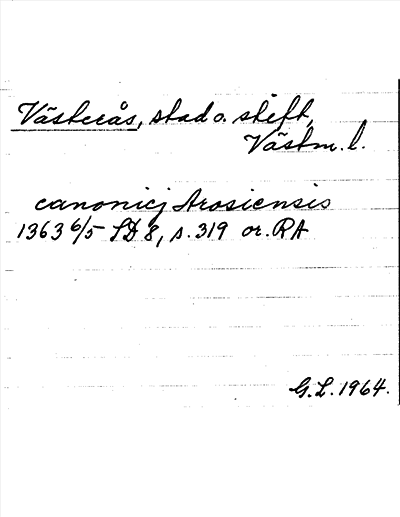 Västerås, stad o. stift,
Västm. l.
canonicj Arosiensis
1363 6/5 SD 8, s. 319 or. RA
G.L. 1964.